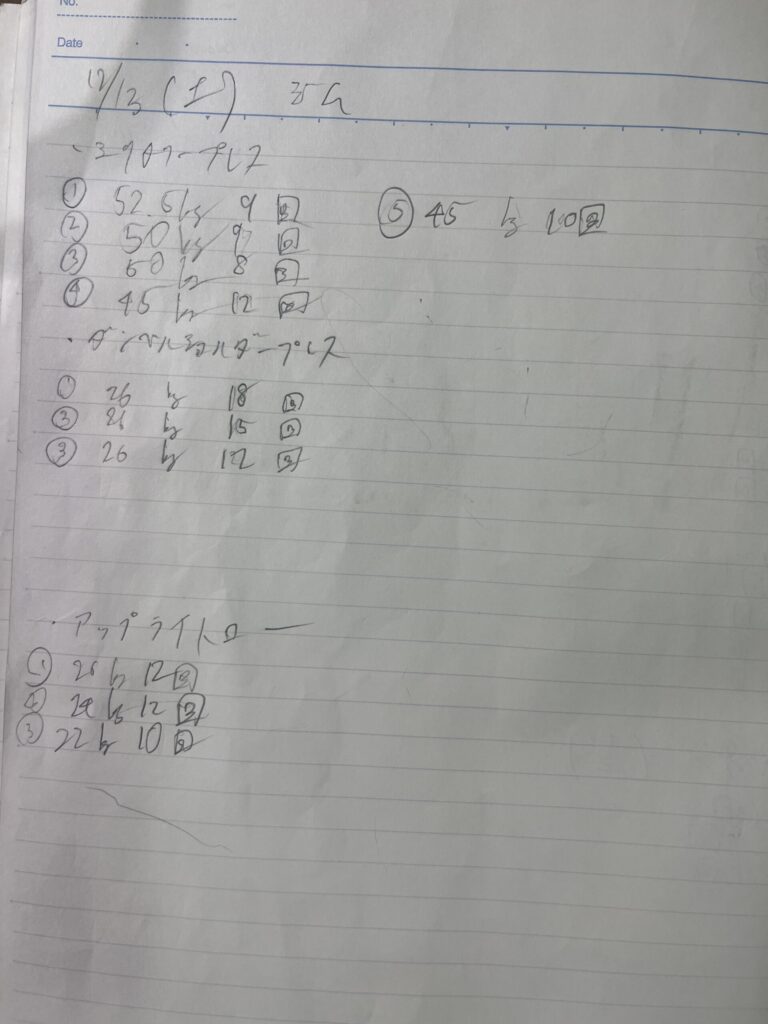 No.
Date
12/13 (土) 肩
・ショルダープレス
① 52.5kg 9回
② 50kg 9回
③ 50kg 8回
④ 45kg 12回
⑤ 45kg 10回
・ダンベルショルダープレス
① 26kg 18回
② 26kg 15回
③ 26kg 12回
・アップライトロー
① 26kg 12回
② 24kg 12回
③ 22kg 10回